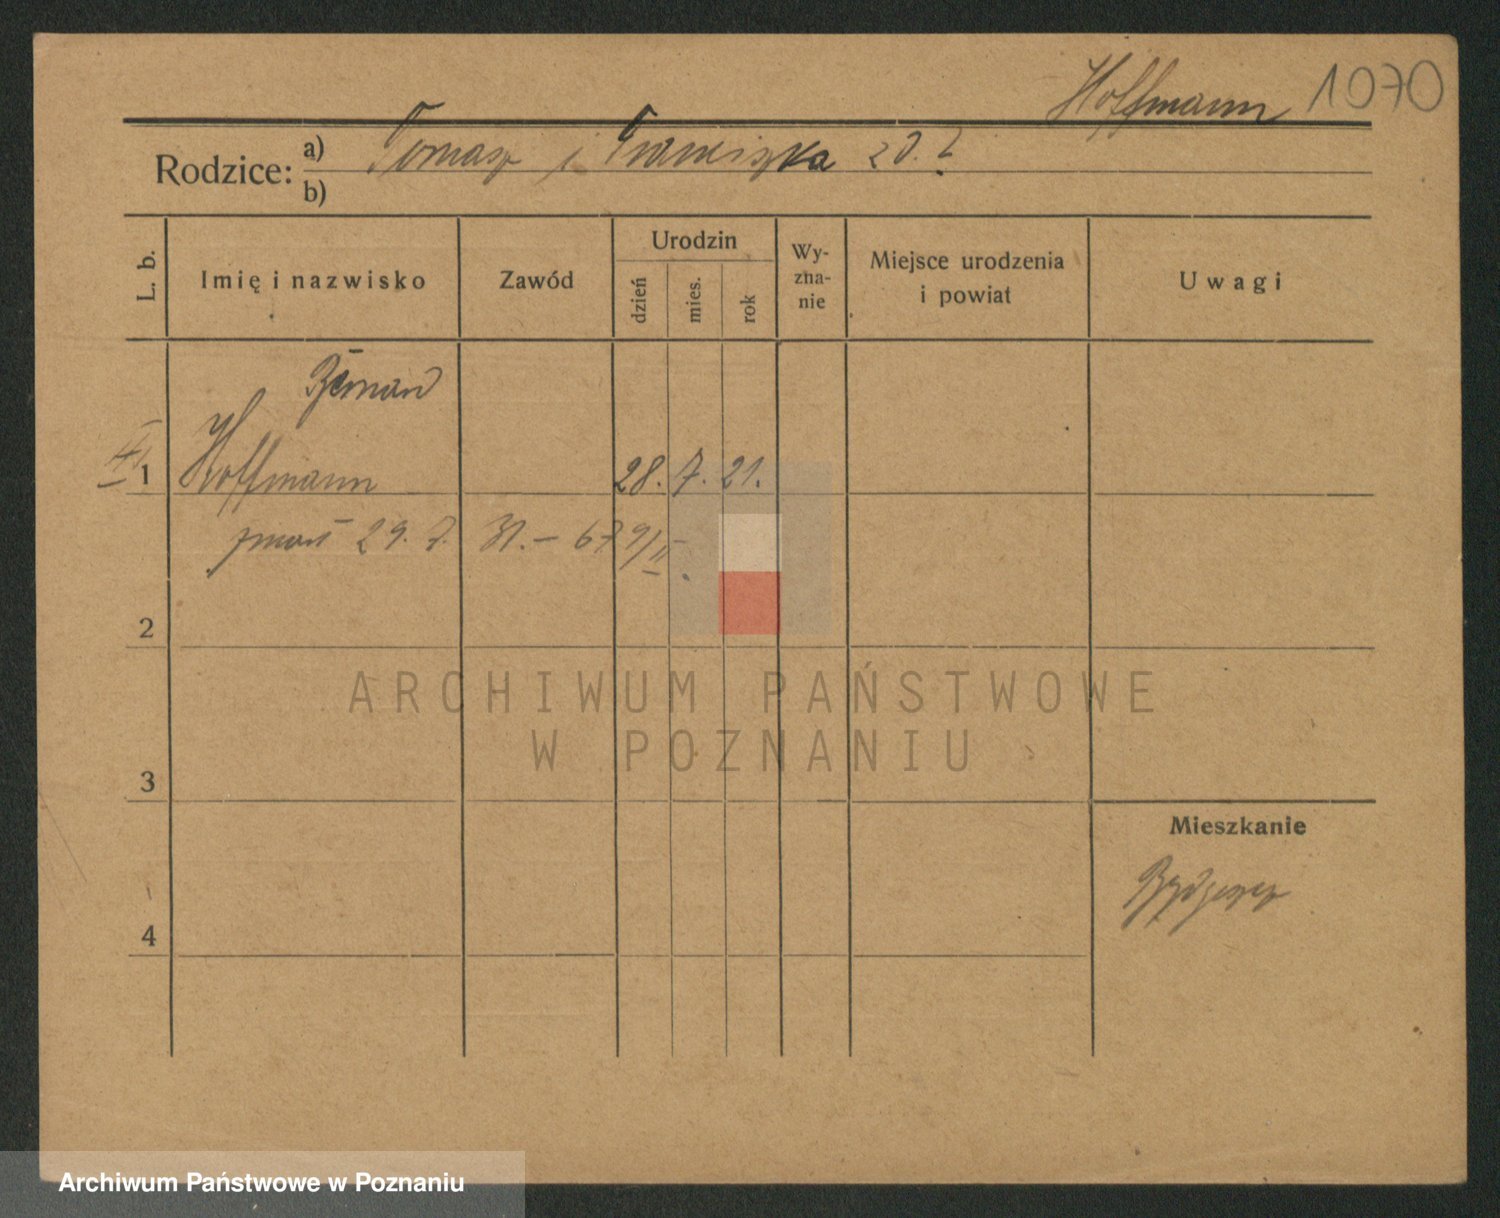 Hoffmann 1070
Rodzice: a) Tomasz i Franciszka z D. ?
b)
L. b. Imię i nazwisko Zawód Urodzin dzień mies. rok Wy-zna-nie Miejsce urodzenia i powiat Uwagi
1 Hoffmann 28. 7. 21.
zmarł 29. 7. 31. – 679/II
2
ARCHIWUM PAŃSTWOWE
W POZNANIU
3
Mieszkanie
4
Archiwum Państwowe w Poznaniu